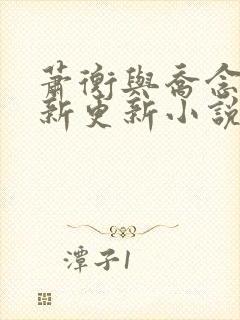 蕭衡與喬念
新更新小說
潭子1